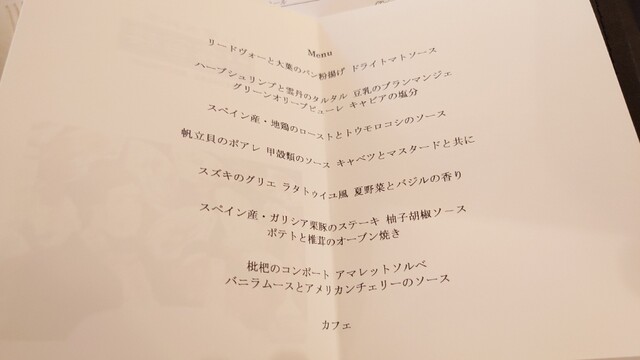 Menu
リードヴォーと大葉のパン粉揚げ ドライトマトソース
ハーブシュリンプと雲丹のタルタル 豆乳のブランマンジェ
グリーンオリーブピューレ キャビアの塩分
スペイン産・地鶏のローストとトウモロコシのソース
帆立貝のポアレ 甲殻類のソース キャベツとマスタードと共に
スズキのグリエ ラタトゥイユ風 夏野菜とバジルの香り
スペイン産・ガリシア栗豚のステーキ 柚子胡椒ソース
ポテトと椎茸のオーブン焼き
枇杷のコンポート アマレットソルベ
バニラムースとアメリカンチェリーのソース
カフェ